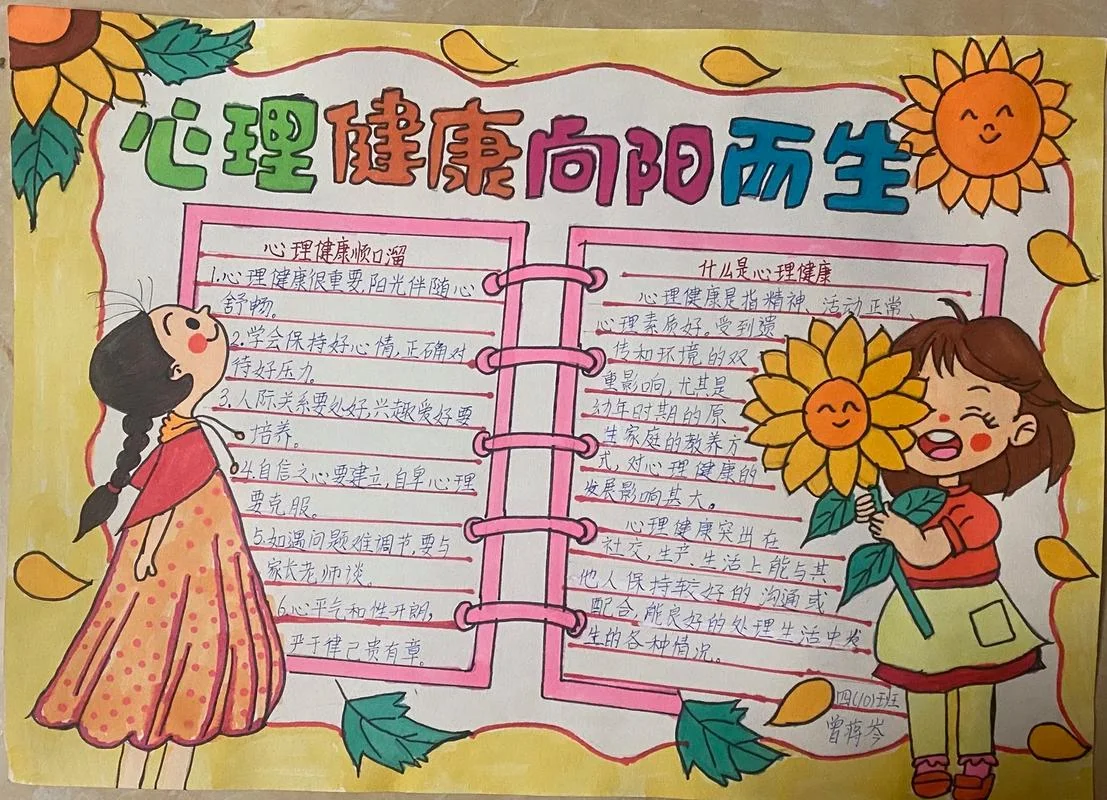 心理健康向阳而生
心理健康顺口溜
1.心理健康很重要,阳光伴随心
舒畅。
2.学会保持好心情,正确对
待好压力。
3.人际关系要处好,兴趣爱好要
培养。
4.自信之心要建立,自卑心理
要克服。
5.如遇问题难调节,要与
家长老师谈。
6.心平气和性开朗,
严于律己贵有章。
什么是心理健康
心理健康是指精神、活动正常、
心理素质好。受到遗
传和环境的双
重影响,尤其是
幼年时期的原
生家庭的教养方
式,对心理健康的
发展影响甚大。
心理健康突出在
社交,生产、生活上能与其
他人保持较好的沟通或
配合,能良好的处理生活中发
生的各种情况。
四(10)班
曾蒋岑